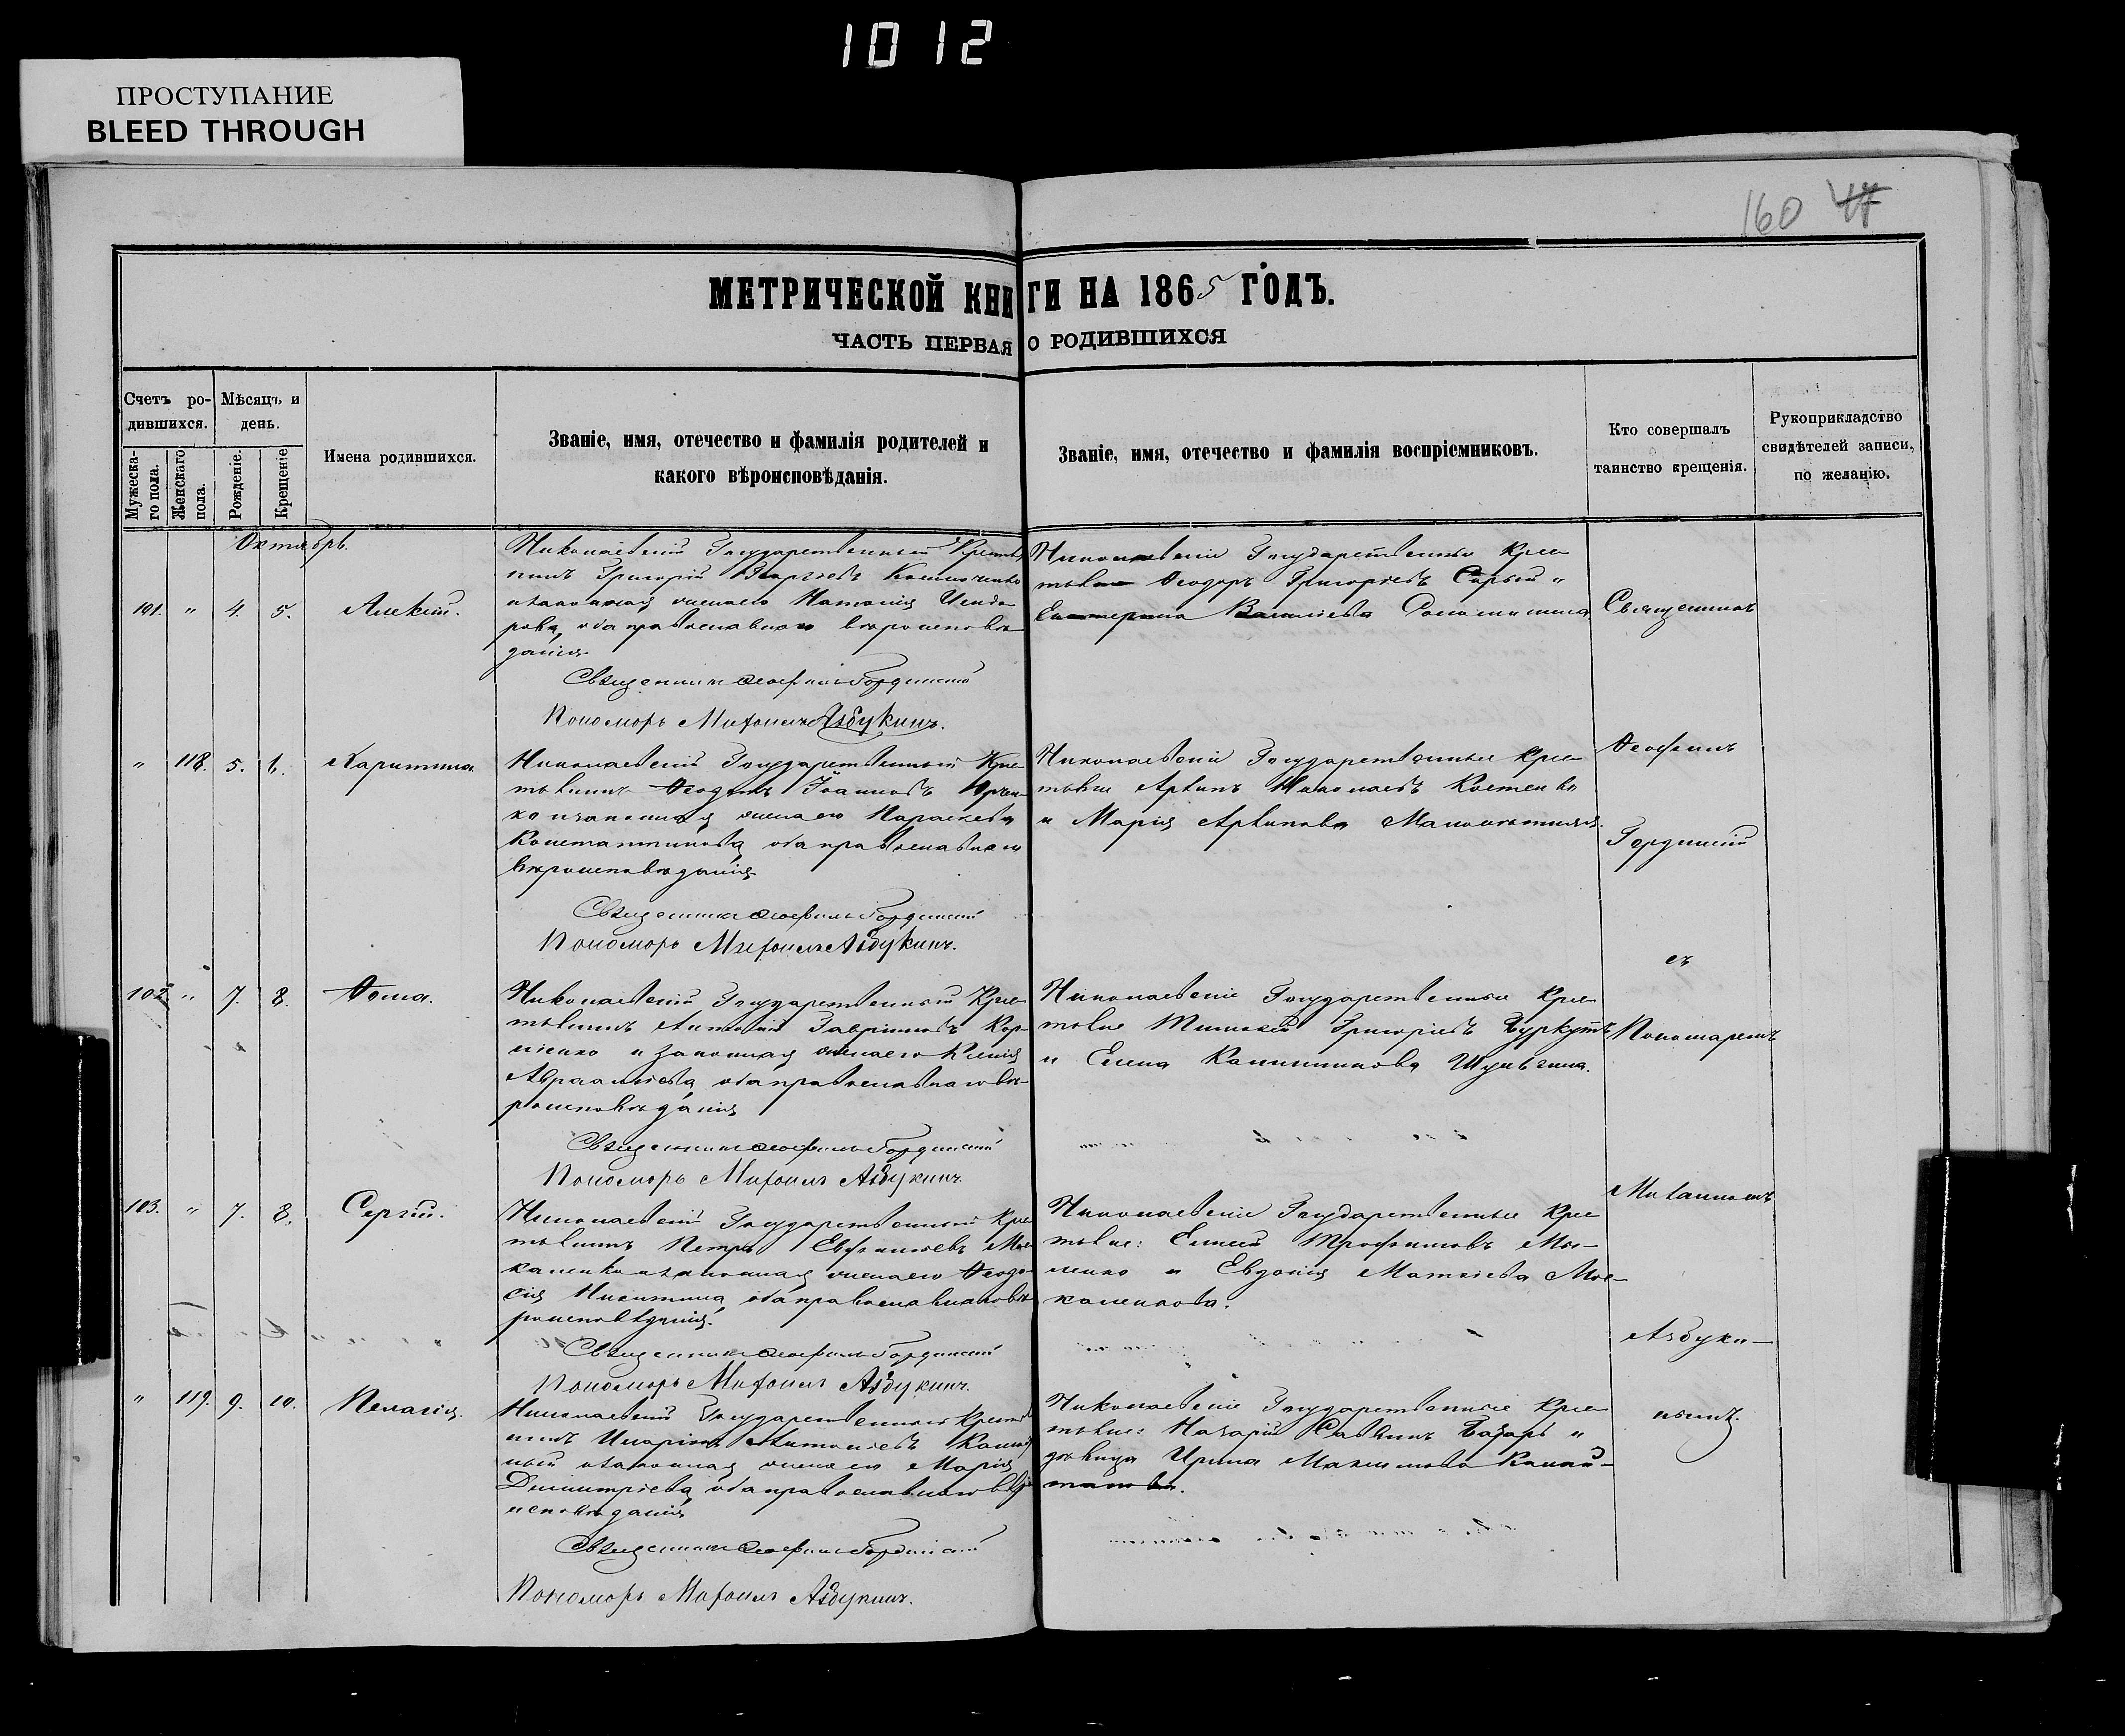 1012
ПРОСТУПАНИЕ
BLEED THROUGH
160 47
МЕТРИЧЕСКОЙ КНИГИ НА 1865 ГОДЪ.
ЧАСТЬ ПЕРВАЯ О РОДИВШИХСЯ
Счетъ родившихся.
Мужескаго пола.
Женскаго пола.
Мѣсяцъ и день.
Рожденіе.
Крещеніе
Имена родившихся.
Званіе, имя, отечество и фамилія родителей и
какого вѣроисповѣданія.
Званіе, имя, отечество и фамилія воспріемниковъ.
Кто совершалъ
таинство крещенія.
Рукоприкладство
свидѣтелей записи,
по желанію.
Октябрь.
101. " 4. 5. Алексій.
Николаевскій Государственный Кресть
нинъ Григорій
и законная жена его Наталія Исидо
рова, оба православнаго вѣроисповѣ
данія
Священникъ Ѳеофилъ Гординскій
Пономорь Митрофанъ Азбукинъ.
Николаевскіе Государственные Крес
тьяне Ѳеодоръ Григорьевъ Сирый и
Екатерина Васильева
Священникъ
" 118. 5. 6. Харитина.
Николаевскій Государственный Крес
тьянинъ Ѳеодотъ Іоанновъ
ко и законная жена его Параскева
Константинова, оба православнаго
вѣроисповѣданія
Священникъ Ѳеофилъ Гординскій
Пономорь Митрофанъ Азбукинъ.
Николаевскіе Государственные Крес
тьяне Архипъ Николаевъ Костенко
и Марія Архипова
Ѳеофилъ
Гординскій
съ
102 " 7. 8. Ѳома.
Николаевскій Государственный Крес
тьянинъ Антоній Гавріиловъ Кор
ніенко и законная жена его Ксенія
Авраамієва, оба православнаго вѣ
роисповѣданія
Священникъ Ѳеофилъ Гординскій
Пономорь Митрофанъ Азбукинъ
Николаевскіе Государственные Крес
тьяне Тимоѳей Григорьевъ
и Елена Калинникова Шульгина.
Пономаремъ
103. " 7. 8. Сергій.
Николаевскій Государственный Крес
тьянинъ Петръ Евфиміевъ Мос
каленко и законная жена его Ѳеодо
сія Никитина, оба православнаго вѣ
роисповѣданія.
Священникъ Ѳеофилъ Гординскій
Пономорь Митрофанъ Азбукинъ.
Николаевскіе Государственные Крес
тьяне: Елисей Трофимовъ
и Евдокія Матвѣева Мос
каленкова.
Азбуки
" 119. 9. 10. Пелагія.
Николаевскій Государственный Крестья
нинъ Иларіонъ Антоніевъ
и законная жена его Марія
Димитріева, оба православнаго вѣро
исповѣданія
Священникъ Ѳеофилъ Гординскій
Пономорь Митрофанъ Азбукинъ.
Николаевскіе Государственные Крес
тьяне: Назарій Саввинъ Базарь и
дѣвица Ирина Максимова
нымъ.